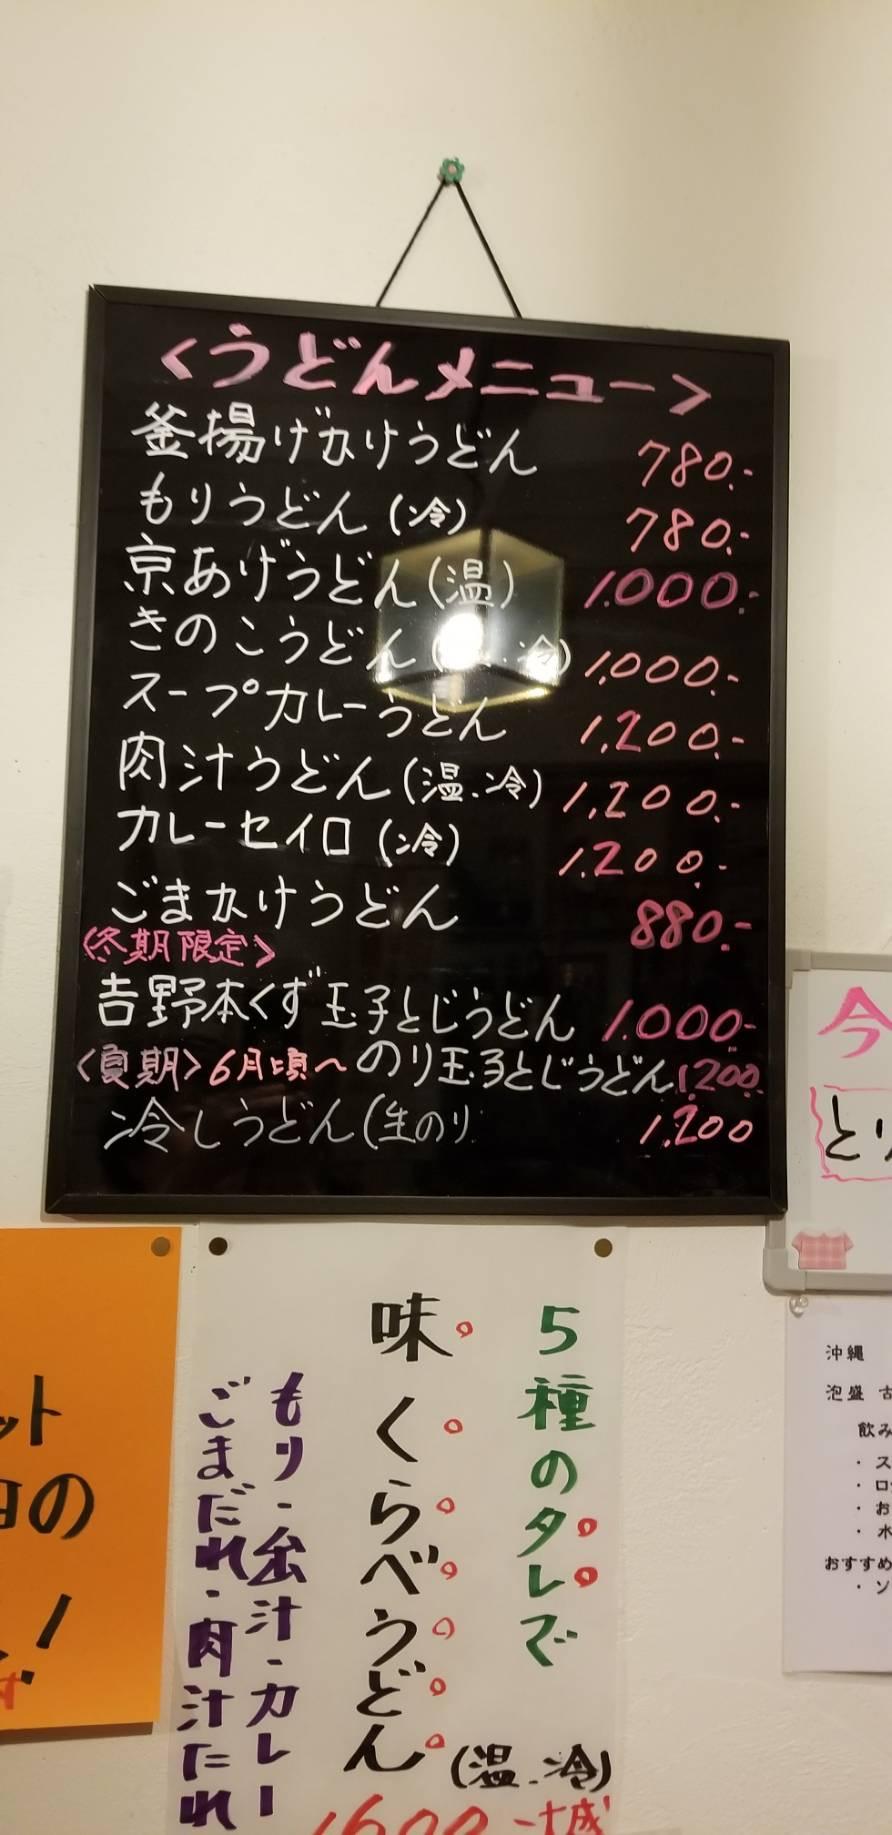 <うどんメニュー>
釜揚げかけうどん 780.-
もりうどん(冷) 780.-
京あげうどん(温) 1.000.-
きのこうどん( .冷) 1,000.-
スープカレーうどん 1,200.-
肉汁うどん(温.冷) 1,200.-
カレーセイロ(冷) 1.200.-
ごまかけうどん 880.-
<冬期限定>
吉野本くず玉子とじうどん 1.000-
<夏期>6月頃〜のり玉子とじうどん 1200.
冷しうどん(生のり 1,200
5種のタレで
味くらべうどん
(温.冷)
もり・ 汁・カレー
ごまだれ・肉汁だれ
1600-
ット
の
!
今
とり
沖縄
泡盛 古
飲み
・ス
・ロ
・お
・水
おすすめ
・ソ